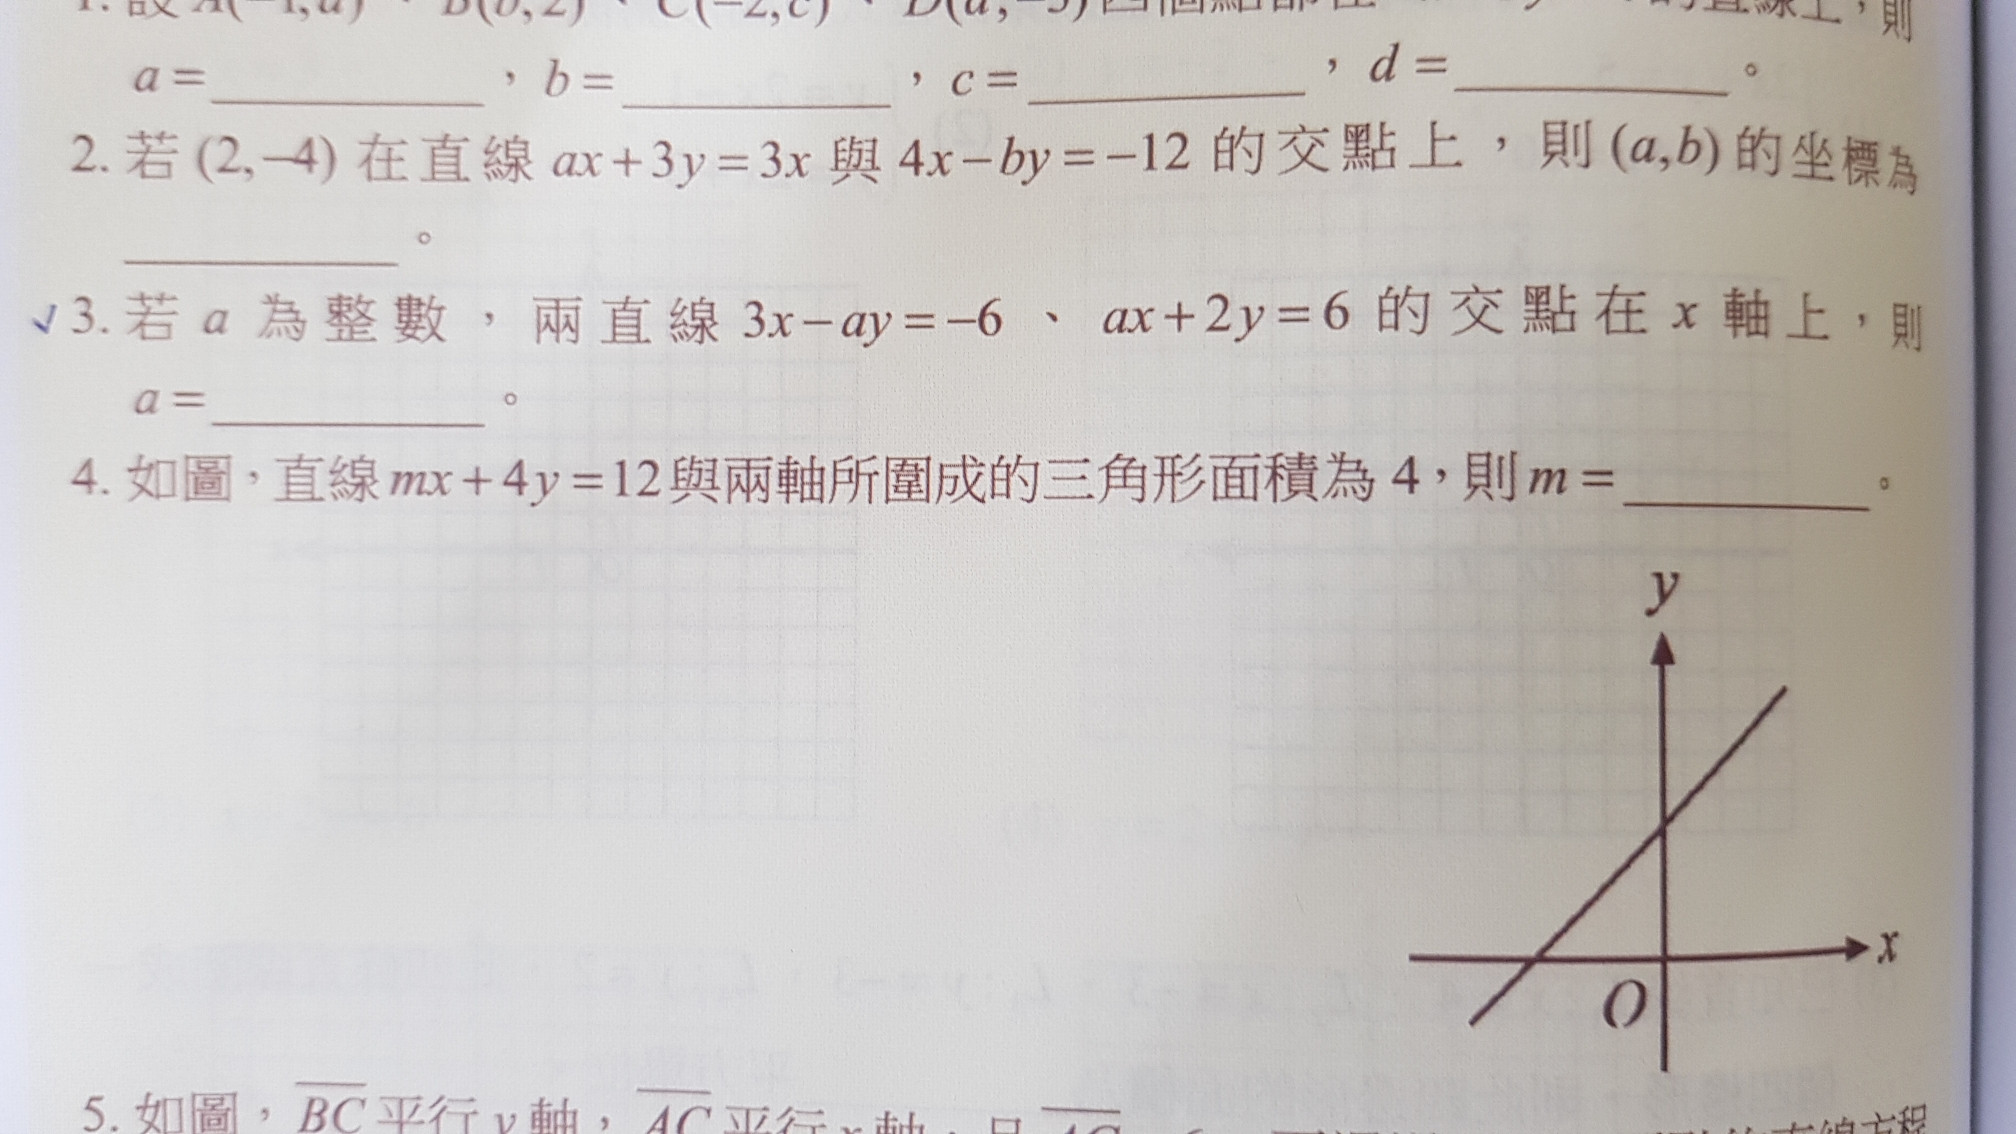 1. 設 A(−1,a)、B(b,2)、C(−2,c)、D(d,−3) 四個點都在 的直線上，則
a = ________，b = ________，c = ________，d = ________。
2. 若 (2,−4) 在直線 ax+3y=3x 與 4x−by=−12 的交點上，則 (a,b) 的坐標為
________。
3. 若 a 為整數，兩直線 3x−ay=−6、ax+2y=6 的交點在 x 軸上，則
a = ________。
4. 如圖，直線 mx+4y=12 與兩軸所圍成的三角形面積為 4，則 m = ________。
y
x
O
5. 如圖，BC 平行 y 軸，AC 平行 x 軸，且 AC 直線方程